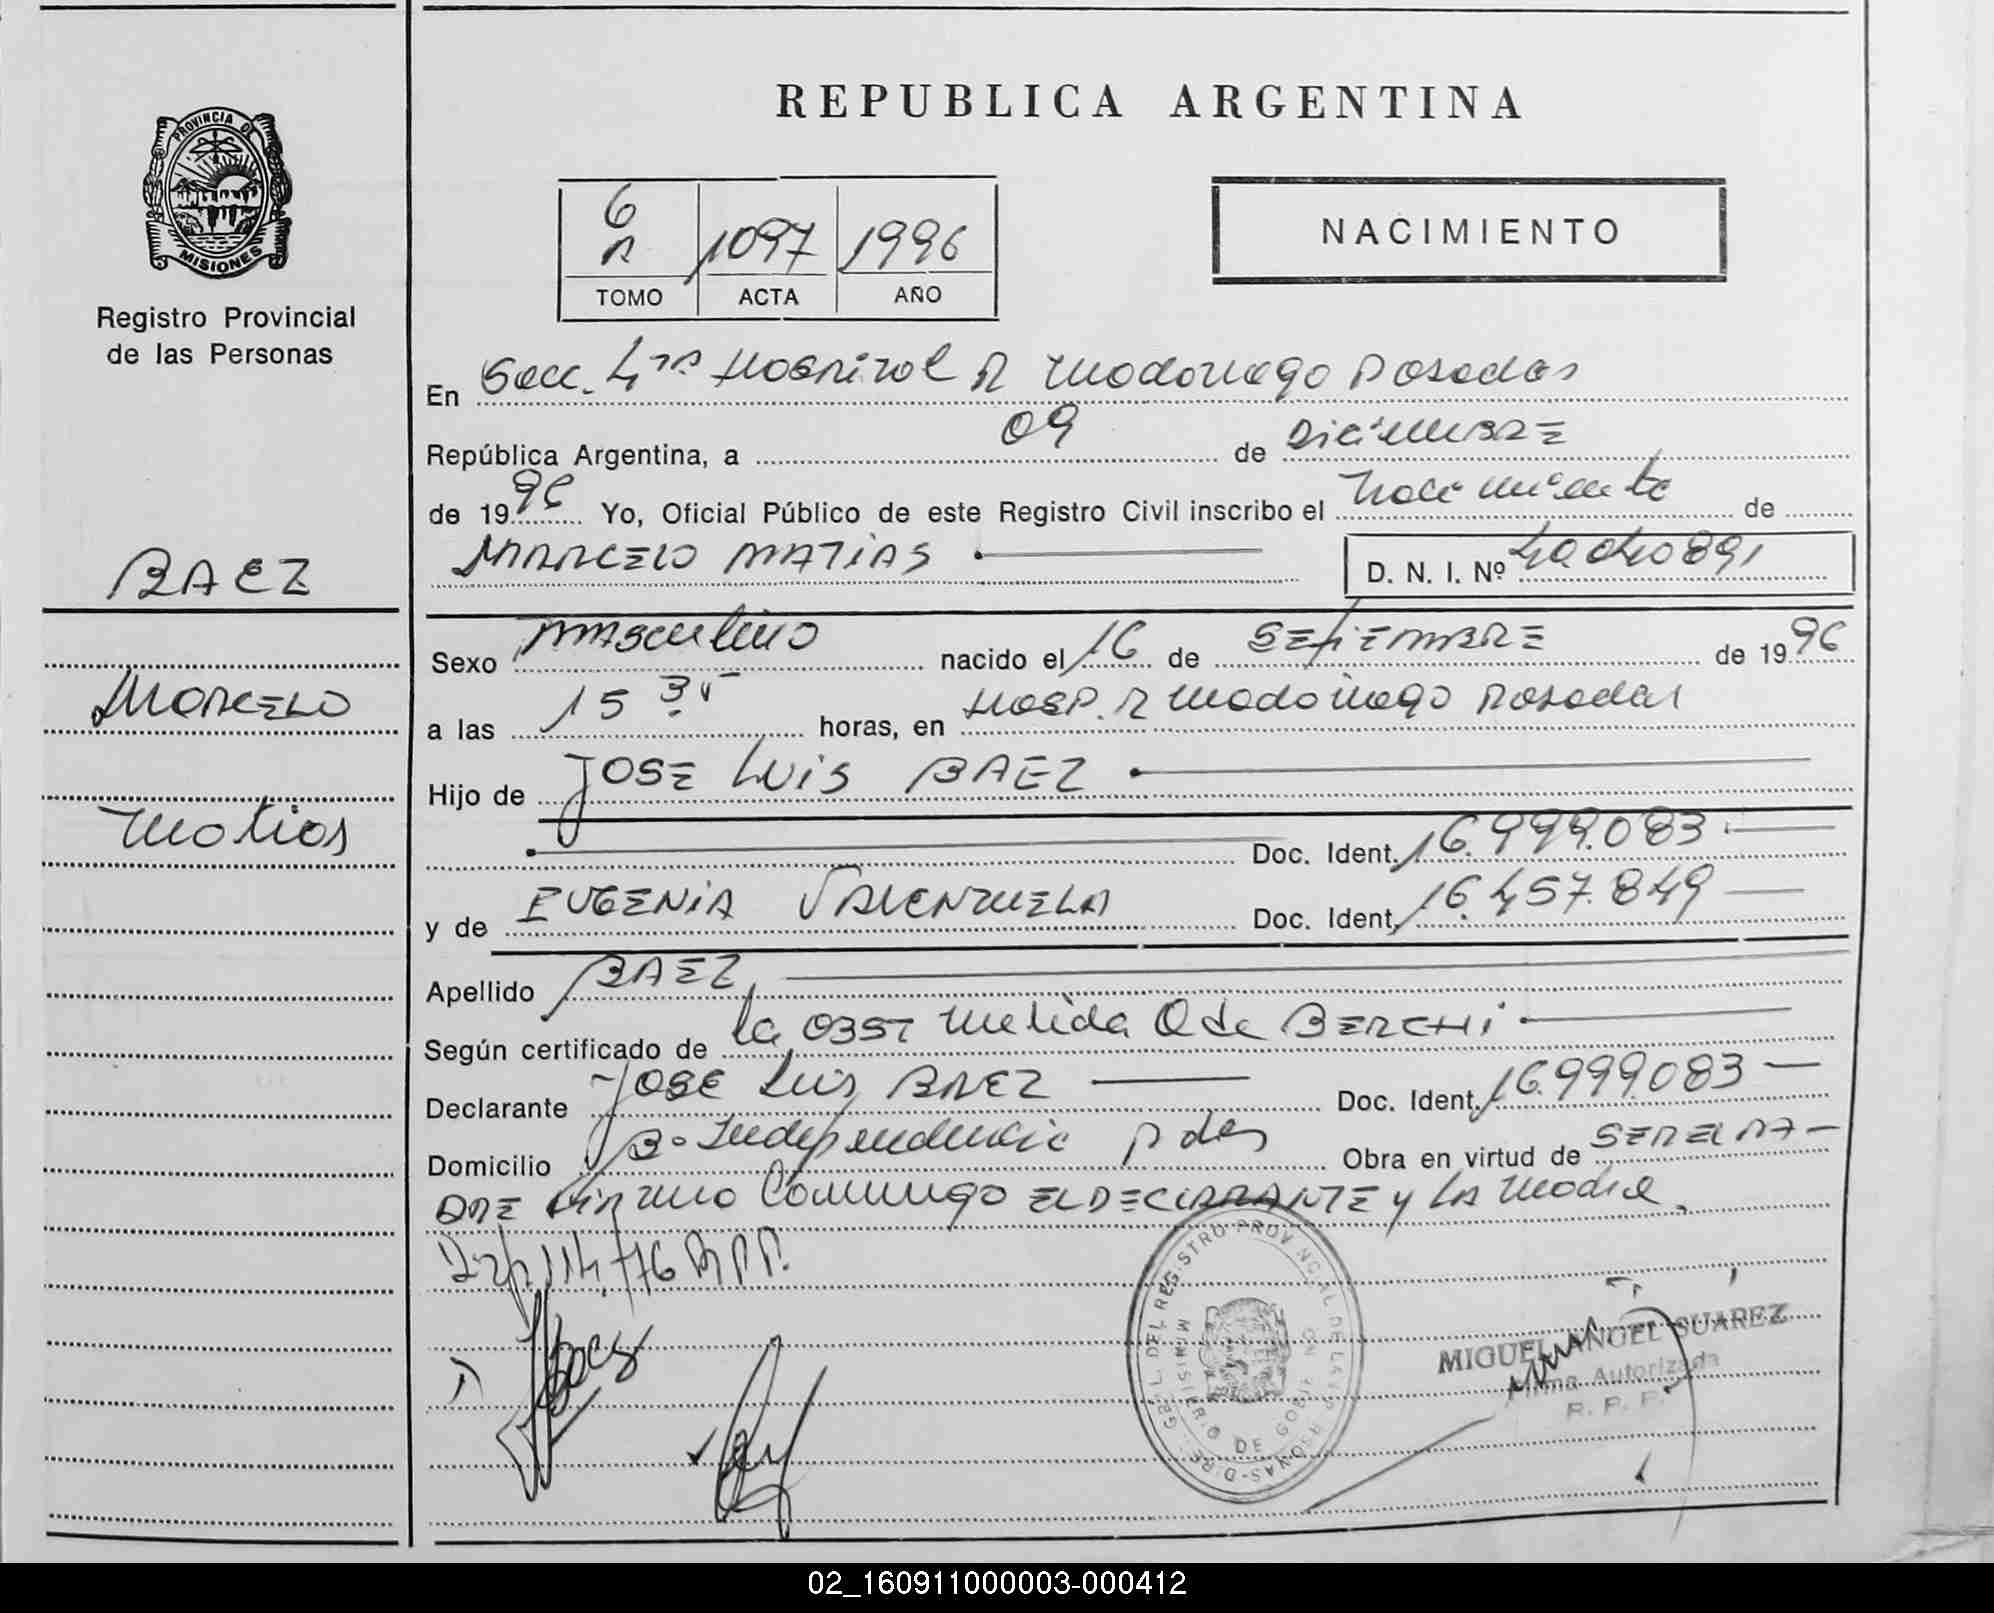 PROVINCIA DE
MISIONES
Registro Provincial
de las Personas
BAEZ
Marcelo
Matias
REPUBLICA ARGENTINA
6
A 1097 1996
TOMO ACTA AÑO
NACIMIENTO
En Secc. 4ta Hospital R Madariaga Posadas
República Argentina, a 09 de Diciembre
de 1996 Yo, Oficial Público de este Registro Civil inscribo el Nacimiento de
MARCELO MATIAS D. N. I. Nº
Sexo Masculino nacido el 16 de SETIEMBRE de 1996
a las 15 35 horas, en Hosp. R Madariaga Posadas
Hijo de JOSE LUIS BAEZ
Doc. Ident. 16.999.083
y de EUGENIA VALENZUELA Doc. Ident. 16.457.849
Apellido BAEZ
Según certificado de la OBST BERCHI
Declarante JOSE Luis BAEZ Doc. Ident. 16.999.083
Domicilio Bº Independencia Pdas Obra en virtud de
Conmigo EL DECLARANTE y LA Madre.
Baez
MIGUEL ANGEL SUAREZ
Firma Autorizada
R. P. P.
02_160911000003-000412